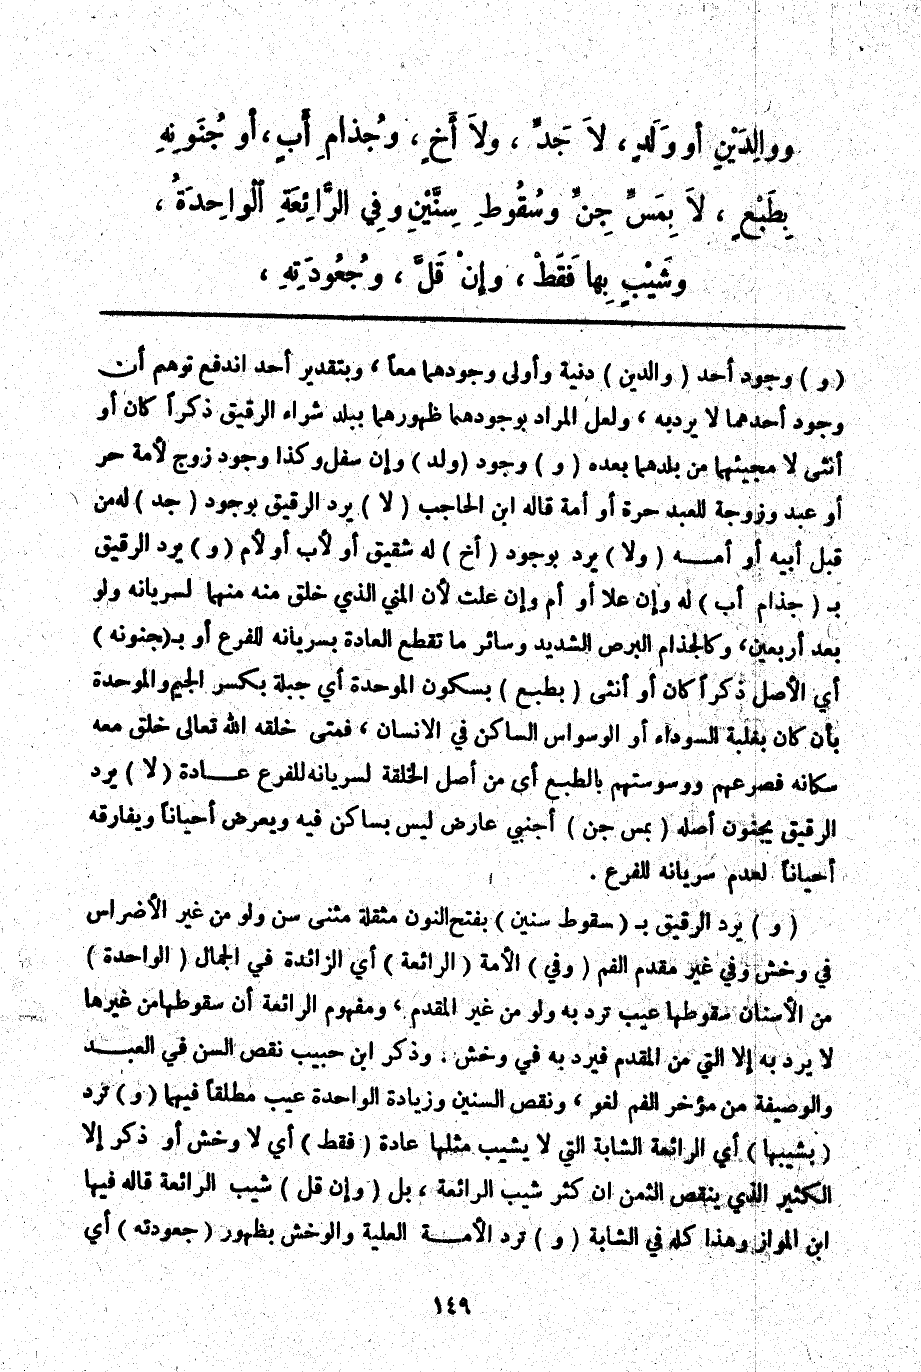 ووالِدَيْنِ أو وَلَدٍ، لاَ جَدٍّ ، ولاَ أَخٍ، وجُذامِ أَبٍ، أو جُنونِهِ
بِطَبْعٍ ، لاَ بِمَسِّ جِنٍّ وسُقُوطِ سِنَّيْنِ وفِي الرَّائِعَةِ الْواحِدةُ ،
وشَيْبٍ بِها فَقَطْ ، وإنْ قَلَّ ، وجُعُودَتِهِ ،
( و ) وجود أحد ( والدين ) دنية وأولى وجودهما معاً ، وبتقدير أحد اندفع توهم أن
وجود أحدهما لا يرد به ، ولعل المراد بوجودهما ظهورهما ببلد شراء الرقيق ذكراً كان أو
أنثى لا مجيئهما من بلدهما بعده ( و ) وجود (ولد ) وإن سفل وكذا وجود زوج لأمة حر
أو عبد وزوجة للعبد حرة أو أمة قاله ابن الحاجب ( لا ) يرد الرقيق بوجود ( جد ) له من
قبل أبيه أو أمه ( ولا ) يرد بوجود ( أخ ) له شقيق أو لأب أو لأم ( و ) يرد الرقيق
بـ ( جذام أب ) له وإن علا أو أم وإن علت لأن المني الذي خلق منه منهما لسريانه ولو
بعد أربعين، وكالجذام البرص الشديد وسائر ما تقطع العادة بسريانه للفرع أو بـ(جنونه )
أي الأصل ذكراً كان أو أنثى ( بطبع ) بسكون الموحدة أي جبلة بكسر الجيم والموحدة
بأن كان بغلبة السوداء أو الوسواس الساكن في الانسان ، فمتى خلقه الله تعالى خلق معه
سكانه فصرعهم ووسوستهم بالطبع أى من أصل الخلقة لسريانه للفرع عادة ( لا ) يرد
الرقيق بجنون أصله ( بمس جن ) أجنبي عارض ليس بساكن فيه ويعرض أحياناً ويفارقه
أحياناً لعدم سريانه للفرع .
( و ) يرد الرقيق بـ ( سقوط سنين ) بفتح النون مثقلة مثنى سن ولو من غير الأضراس
في وخش وفي غير مقدم الفم ( وفي ) الأمة ( الرائعة ) أي الزائدة في الجمال ( الواحدة )
من الأسنان سقوطها عيب ترد به ولو من غير المقدم ، ومفهوم الرائعة أن سقوطها من غيرها
لا يرد به إلا التي من المقدم فيرد به في وخش . وذكر ابن حبيب نقص السن في العبد
والوصيفة من مؤخر الفم لغو ، ونقص السنين وزيادة الواحدة عيب مطلقاً فيهما ( و ) ترد
( بشيبها ) أي الرائعة الشابة التي لا يشيب مثلها عادة ( فقط ) أي لا وخش أو ذكر إلا
الكثير الذي ينقص الثمن ان كثر شيب الرائعة ، بل ( وإن قل ) شيب الرائعة قاله فيها
ابن المواز وهذا كله في الشابة ( و ) ترد الأمة العلية والوخش بظهور ( جعودته ) أي
١٤٩